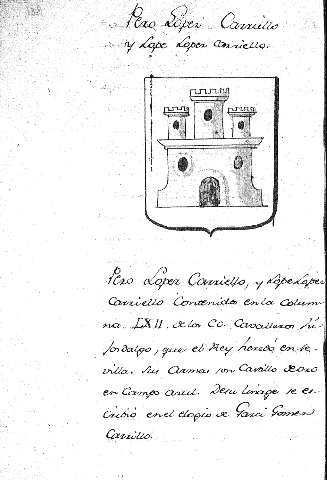 Pero Lopez Carriello
y Lope Lopez Carriello.
Pero Lopez Carriello, y Lope Lopez
Carriello Contenidos en la Colum
na LXII. de los CC. Cavalleros hi-
josdalgo, que el Rey heredó en Se-
villa. Sus Armas son Castillo de oro
en Campo azul. De su linage se es-
cribió en el elogio de Garci Gomez
Carrillo.